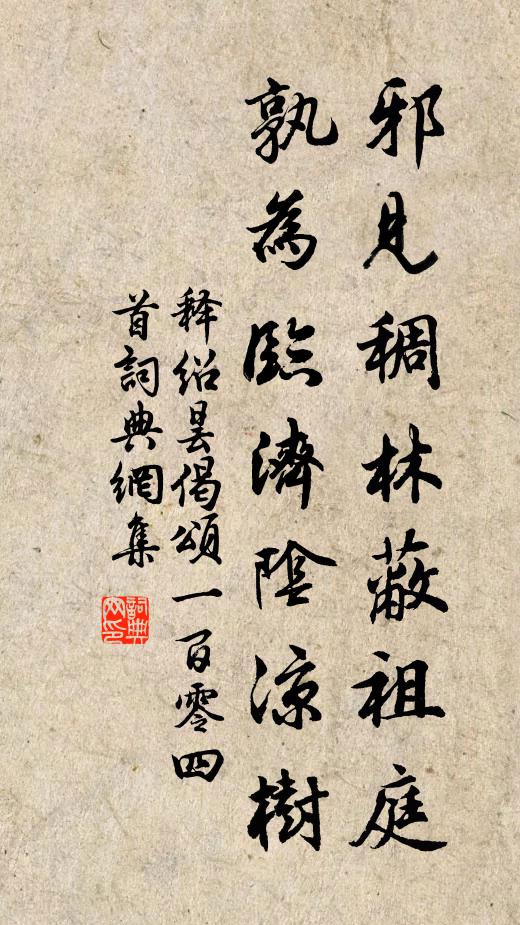 邪見稠林蔽祖庭
孰為臨濟陰涼樹
释绍昙偈頌一百零四
首詞典網集
詞典
网印